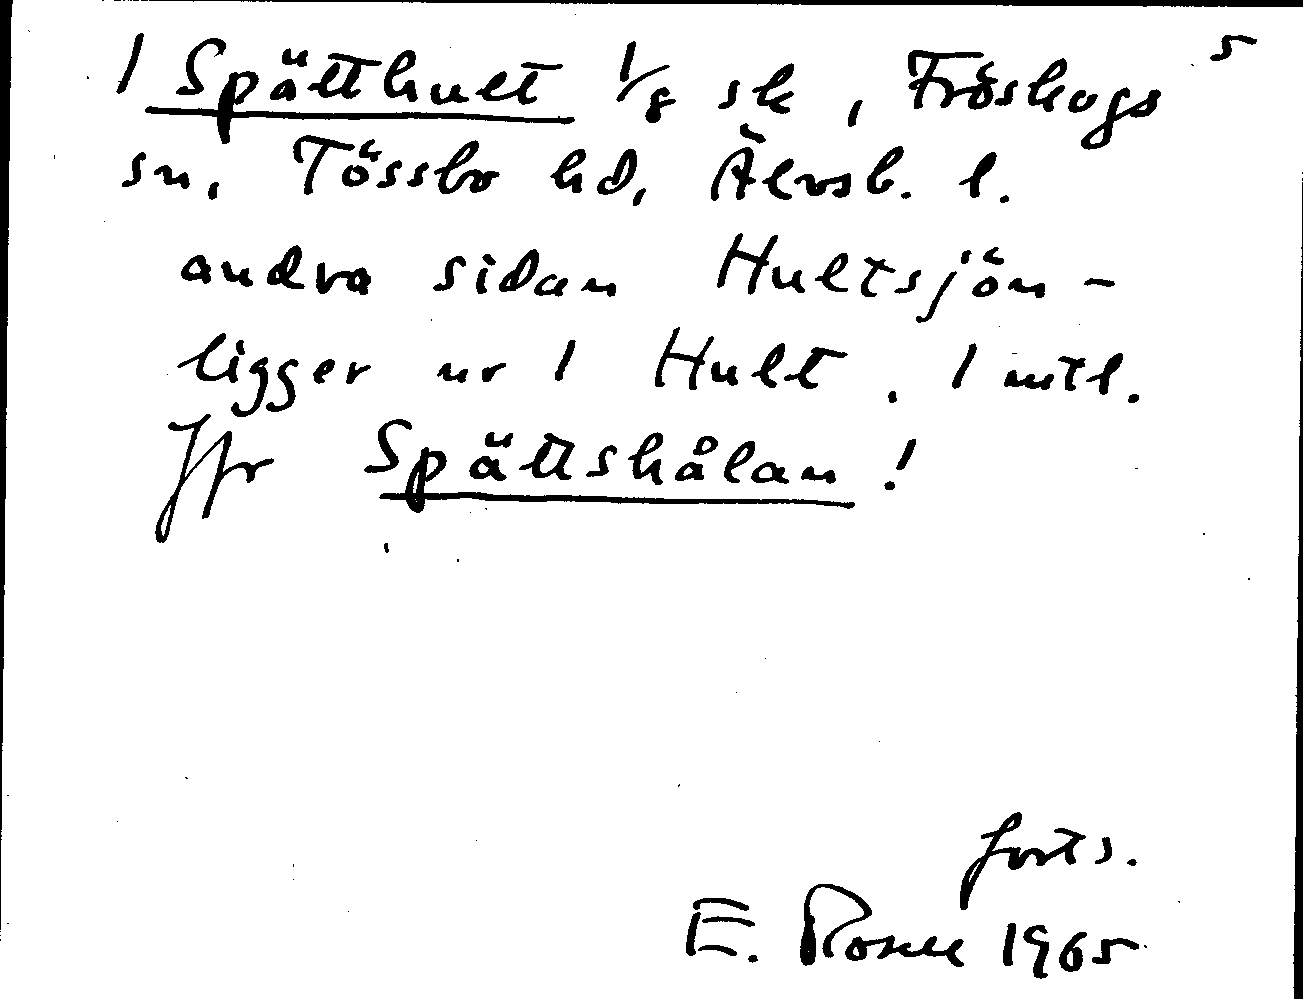 5
1 Spätthult 1/8 sk, Fröskogs
sn, Tössbo hd, Älvsb. l.
andra sidan Hultsjön –
ligger nr 1 Hult. 1 mtl.
Jfr Spättshålan!
forts.
E. 1965